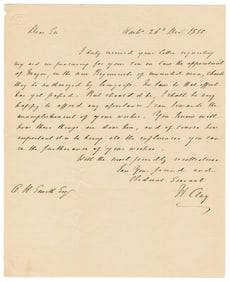 Dear Sir
Wash. 26th Dec. 1850
I duly received your letter requesting
my aid in procuring for your son in case the appointment
of Major, in the new Regiments of mounted men, should
they be authorized by Congress. No law to that effect
has yet passed. That should be, I shall be very
happy to afford any assistance I can towards the
accomplishment of your wishes. You know well
how these things are done here, and of course how
important it is to bring all the influences you can
in the furtherance of your wishes.
With the most friendly recollections
I am Your friend and
Obedient Servant
H. Clay
Esq